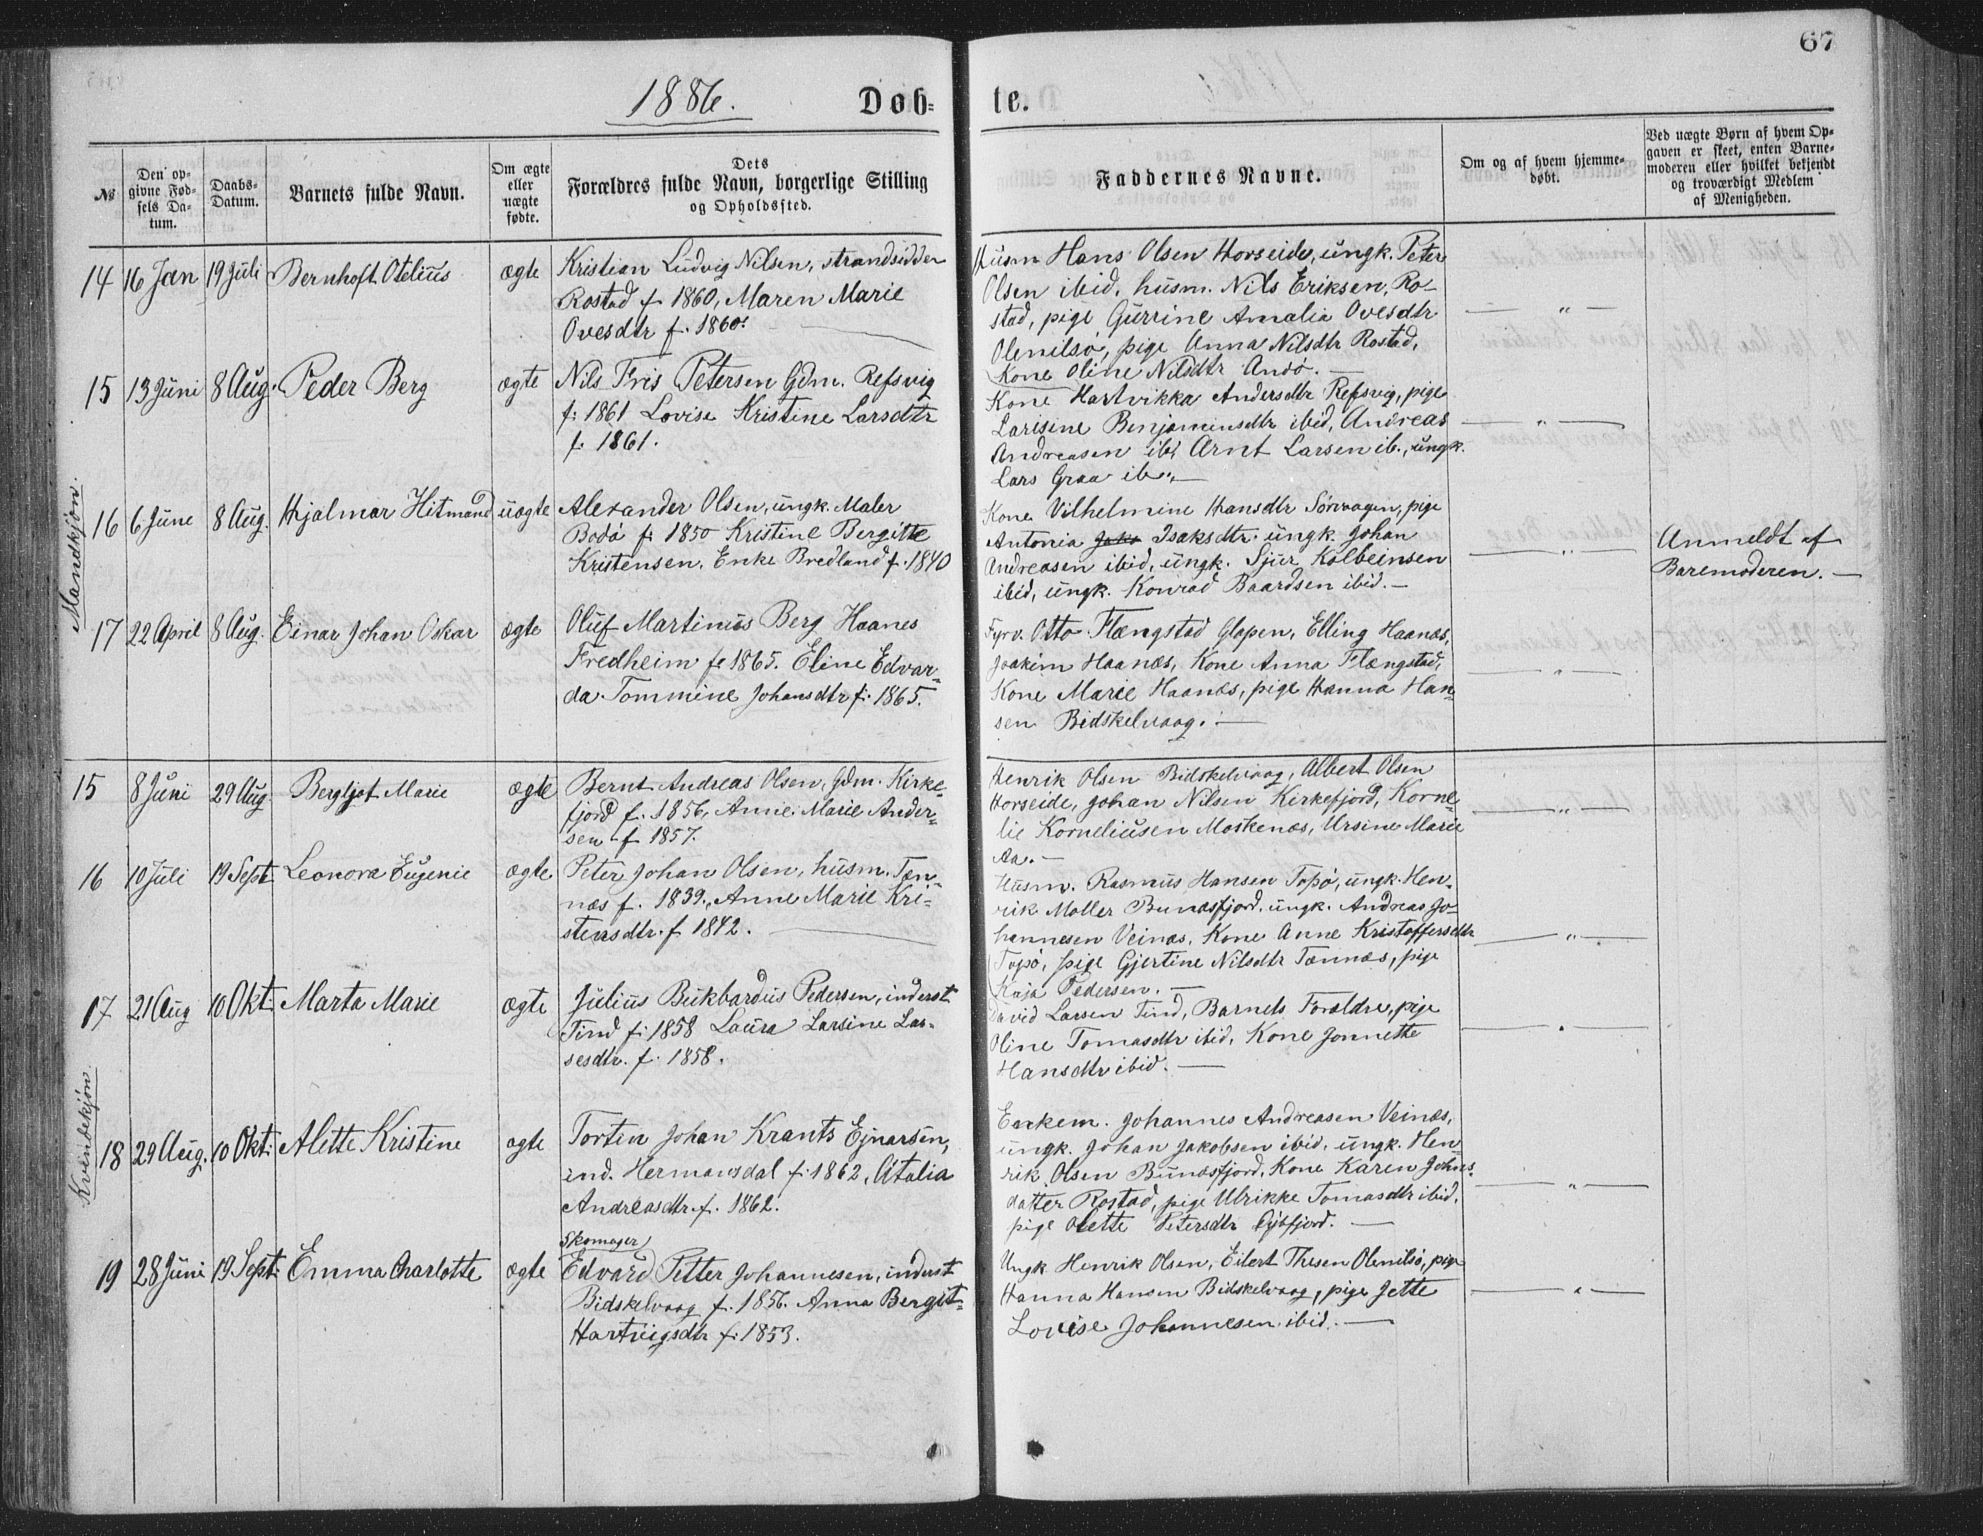 67
1886. Døb- te.
№
Den op-
givne Fød-
sels Da-
tum.
Daabs-
Datum.
Barnets fulde Navn.
Om ægte
eller
uægte
fødte.
Dets
Forældres fulde Navn, borgerlige Stilling
og Opholdssted.
Faddernes Navne.
Om og af hvem hjemme-
døbt.
Ved uægte Børn af hvem Op-
gaven er skeet, enten Barne-
moderen eller hvilket bekjendt
og troværdigt Medlem
af Menigheden.
Mandkjøn.
14 16 Jan 19 Juli Bernhoft Otelius ægte
Kristian Ludvig Nilsen, strandsidder
Rostad f. 1860, Maren Marie
Ovesdtr f. 1860.
Husm Hans Olsen Horseide, ungk. Peter
Olsen ibid, husm. Nils Eriksen, Ro-
stad, pige Gurrine Amalia Ovesdtr
Olenilsø, pige Anna Nilsdtr Rostad,
Kone Oline Nilsdtr Andø. —
— „ —
15 13 Juni 8 Aug. Peder Berg ægte
Nils Fris Petersen Gdm. Refsvig
f. 1861 Lovise Kristine Larsdtr
f. 1861.
Kone Hartvikka Andersdtr Refsvig, pige
Larisine Benjaminsdtr ibid, Andreas
Andreasen ibi, Arnt Larsen ib., ungk.
Lars Graa ib. —
— „ —
16 6 June 8 Aug. Hjalmar Hitmand uægte
Alexander Olsen, ungk. Maler
Bodø f. 1850 Kristine Bergitte
Kristensen, Enke Bredland f. 1840
Kone Vilhelmine Hansdtr Sørvagen, pige
Antonia Isaksdtr. ungk. Johan
Andreasen ibid, ungk. Sjur Kolbeinsen
ibid, ungk. Konrad Baardsen ibid. —
— „ —
Anmeldt af
Baremoderen. —
17 22 April 8 Aug. Einar Johan Oskar ægte
Oluf Martinus Berg Haanes
Fredheim f. 1865. Eline Edvar-
da Tommine Johansdtr f. 1865.
Fyrv. Otto Flængstad Glapen, Elling Haanæs,
Joakim Haanæs, Kone Anna Flængstad,
Kone Marie Haanæs, pige Hanna Han-
sen Bidskelvaag. —
— „ —
Kvindekjøn.
15 8 Juni 29 Aug Bergljot Marie ægte
Bernt Andreas Olsen, Gdm. Kirke-
fjord f. 1856, Anne Marie Ander-
sen f 1857.
Henrik Olsen Bidskelvaag, Albert Olsen
Horseide, Johan Nilsen Kirkefjord, Korne-
lie Korneliusen Moskenæs, Ursine Marie
Aa. —
— „ —
16 10 Juli 19 Sept Leonora Eugenie ægte
Peter Johan Olsen, husm. Tæn-
næs f. 1839, Anne Marie Kri-
stensdtr. f 1842.
Husm. Rasmus Hansen Topø, ungk. Hen-
rik Moller Bunæsfjord, ungk. Andreas Jo-
hannesen Veinæs, Kone Anne Kristoffersdtr
Topø, pige Gjertine Nilsdtr Tænnæs, pige
Kaja Pedersen. —
— „ —
17 21 Aug 10 Okt. Marta Marie ægte
Julius Bukhardus Pedersen, inderst
Tind f. 1858 Laura Larsine Las-
sesdtr. f. 1858.
David Larsen Tind, Barnets Foraldre, pige
Oline Tomasdtr ibid, Kone Jonnette
Hansdtr ibid. —
— „ —
18 29 Aug. 10 Okt. Alette Kristine ægte
Tortin Johan Krants Ejnarsen,
ind. Hermansdal f. 1862, Atalia
Andreasdtr. f. 1862.
Enkem. Johannes Andreasen Veinæs,
ungk. Johan Jakobsen ibid, ungk. Hen-
rik Olsen Bunæsfjord, Kone Karen Johns-
datter Rostad, pige Ulrikke Tomasdtr ibid,
pige Olette Petersdtr —
— „ —
19 28 Juni 19 Sept. Emma Charlotte ægte
Skomager
Edvard Petter Johannesen, inderst
Bidskelvaag f. 1856. Anna Bergit-
Hartvigsdtr f. 1853.
Ungk Henrik Olsen, Eilert Thesen Olenilsø, pige
Hanna Hansen Bidskelvaag, pige Jette
Lovise Johannesen ibid. —
— „ —